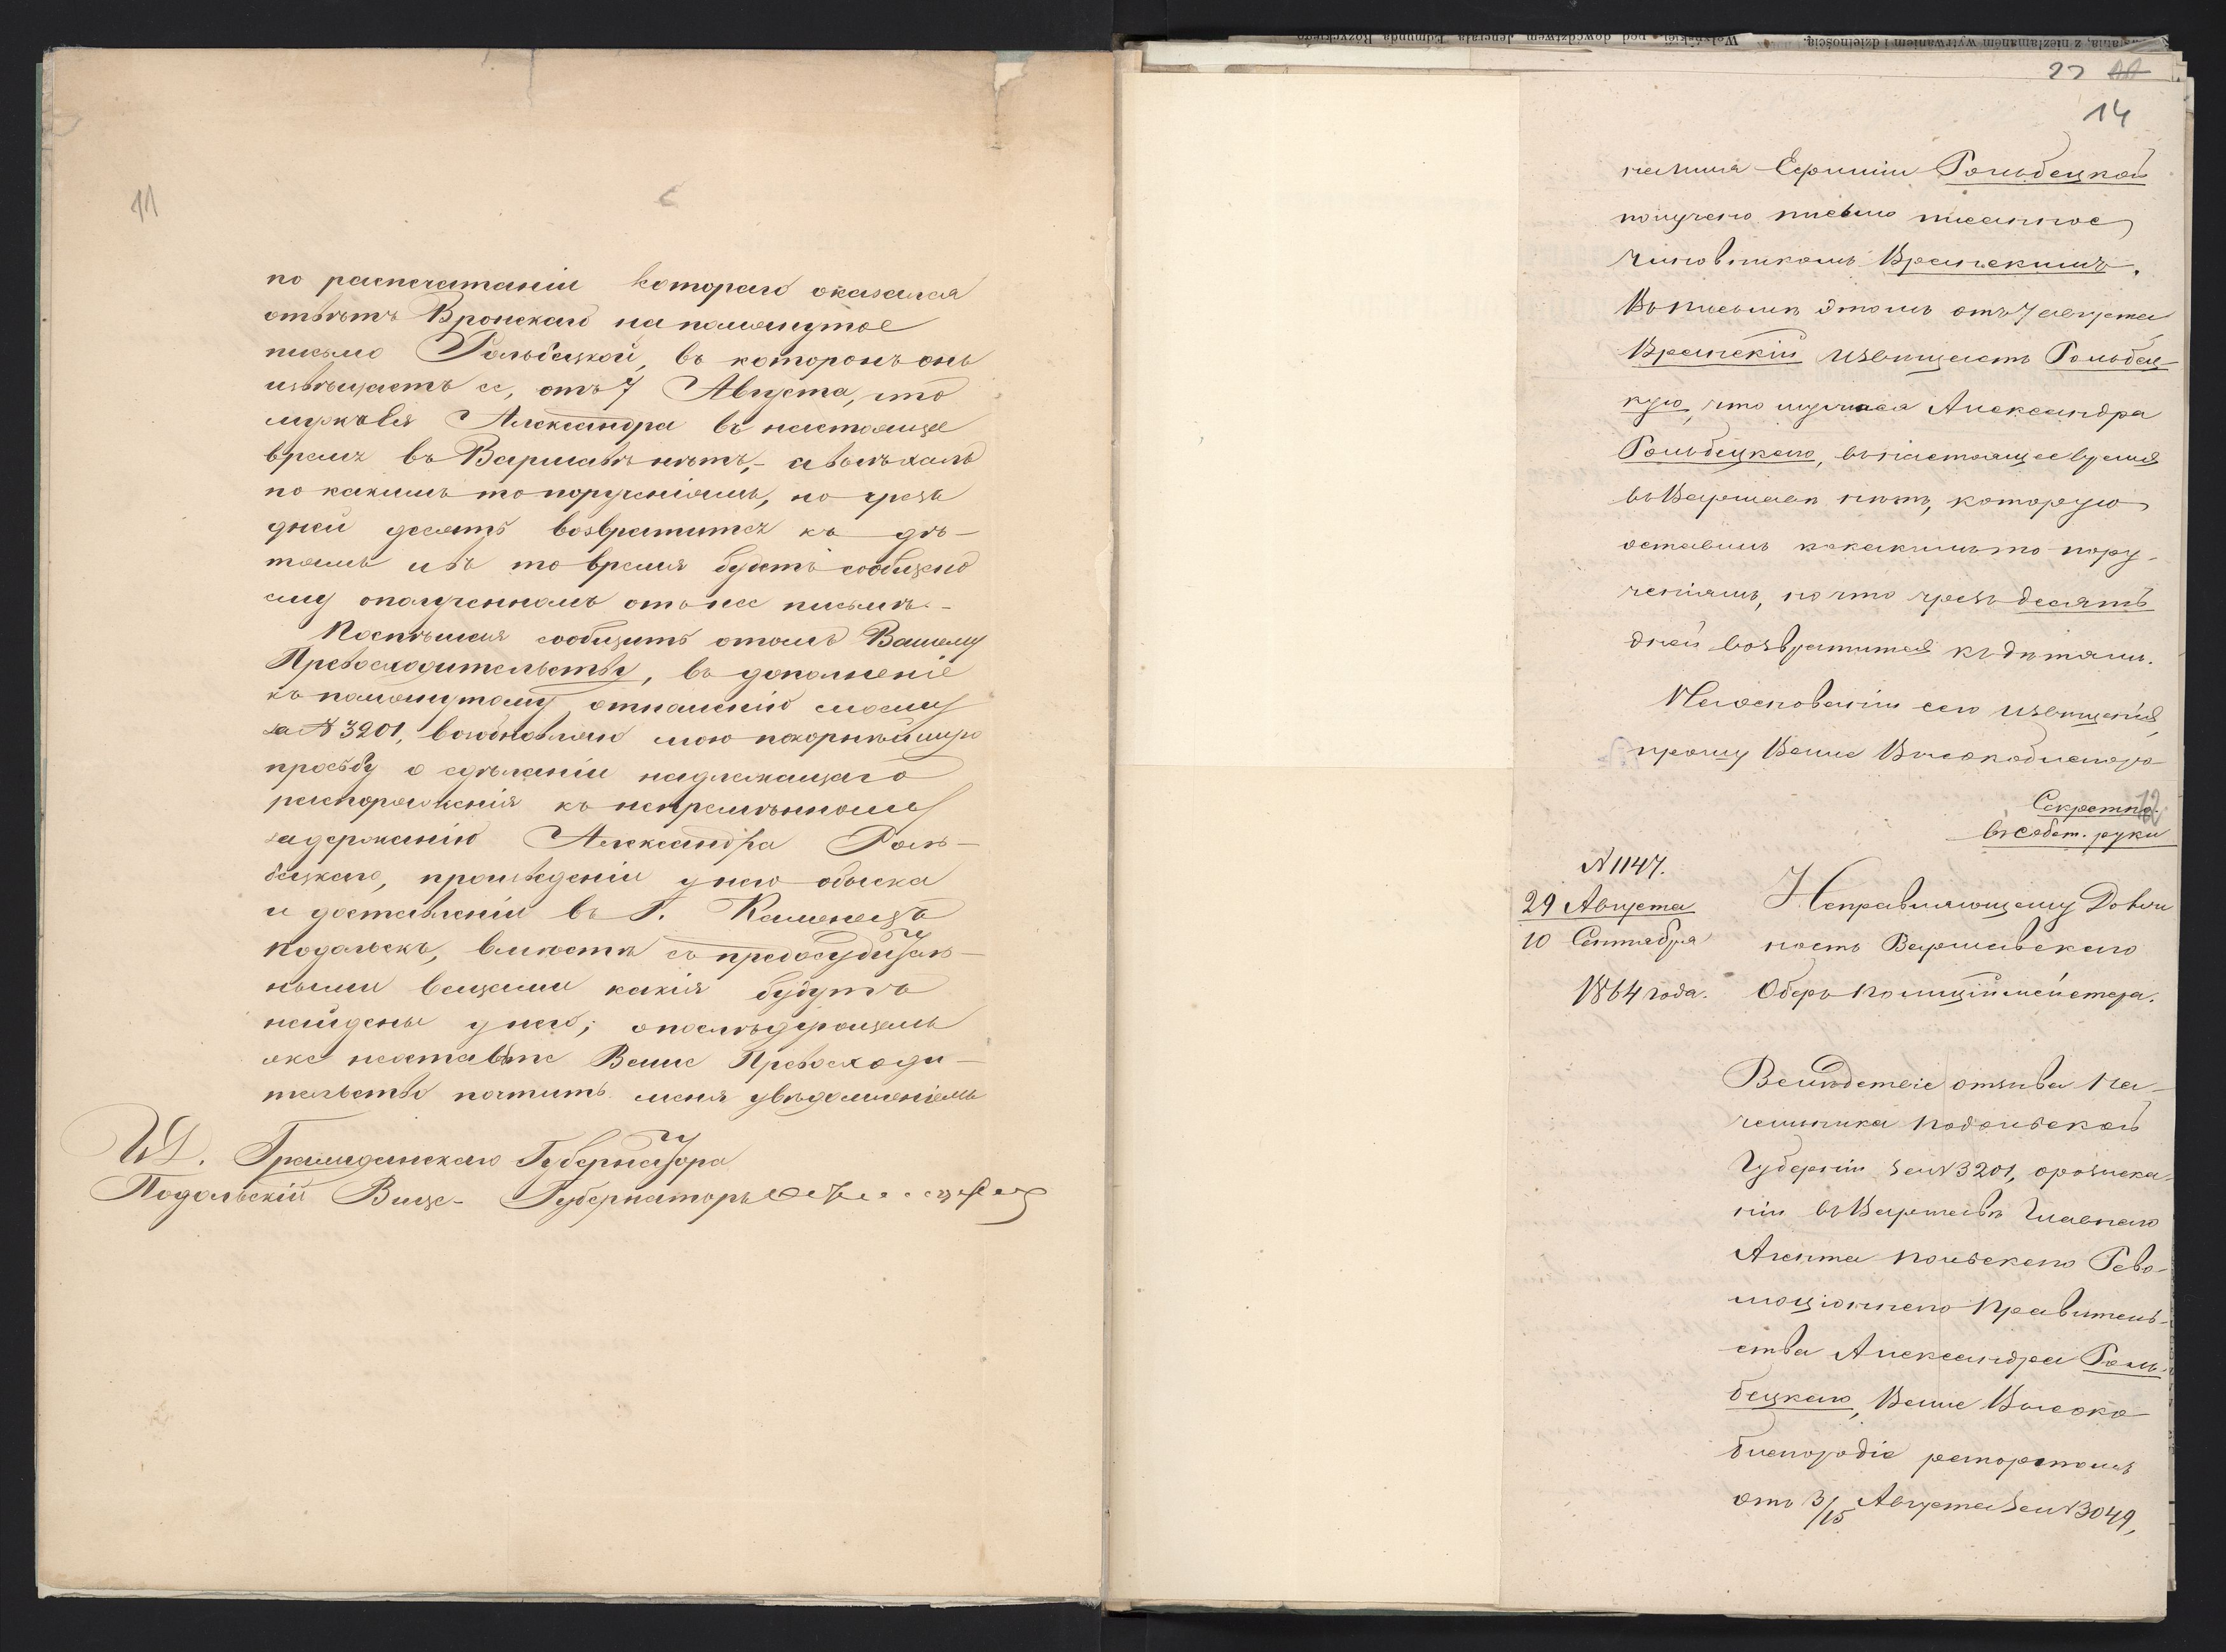 11
по распечатаніи котораго оказался
отвѣтъ Вронскаго на помянутое
письмо Гольбецкой, въ которомъ онъ
извѣщаетъ ее, отъ 7 Августа, что
мужа ея Александра въ настоящее
время въ Варшавѣ нѣтъ, - а выѣхалъ
по какимъ то порученіямъ, но чрезъ
дней десять возвратится къ дѣ-
тямъ и въ то время будетъ сообщено
ему о полученномъ отъ нее письмѣ. -
Поспѣшая сообщить о томъ Вашему
Превосходительству, въ дополненіе
къ помянутому отношенію моему
за N 3201, возобновляю мою покорнѣйшую
просьбу о сдѣланіи надлежащаго
распоряженія къ непремѣнному
задержанію Александра Голь-
бецкаго, произведеніи у него обыска
и доставленіи въ Г. Каменецъ
Подольскъ, вмѣстѣ съ предосудитель-
ными вещами какія будутъ
найдены у него; о послѣдующемъ
же неоставьте Ваше Превосходи-
тельство почтить меня увѣдомленіемъ
И Д. Гражданскаго Губернатора
Подольскій Вице-Губернаторъ
22
14
Ефиміи Гольбецкой
получено письмо писанное
чиновникомъ Вранскимъ.
Въ письмѣ этомъ отъ 7 августа
Вранскій извѣщаетъ Гольбец-
кую, что мужа ея Александра
Гольбецкаго, въ настоящее время
въ Варшавѣ нѣтъ, которую
оставилъ по какимъ то пору-
ченіямъ, но что чрезъ десять
дней возвратится къ дѣтямъ.
На основаніи сего извѣщенія,
прошу Ваше Высокоблагоро
Секретно.
12
въ собст. руки
N 1147.
29 Августа
10 Сентября
1864 года.
Исправляющему Долж
ность Варшавскаго
Оберъ Полиціймейстера.
Вслѣдствіе отзыва На-
чальника Подольской
Губерніи за N 3201, о розыска-
ніи въ Варшавѣ Главнаго
Агента Польскаго Рево-
люціоннаго Правитель-
ства Александра Голь-
бецкаго, Ваше Высоко
благородіе рапортомъ
отъ 3/15 Августа за N 3049,